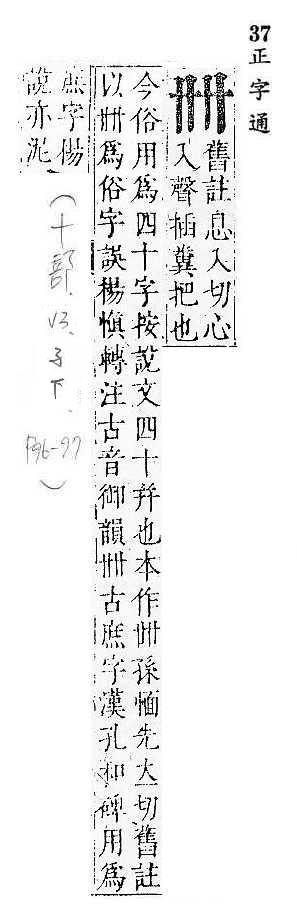 37正字通
卌
舊註息入切心
入聲插糞把也
今俗用爲四十字按說文四十幷也本作卌孫愐先立切舊註
以卌爲俗字誤楊愼轉注古音御韻卌古庶字漢孔和碑用爲
庶字楊
說亦泥
(十部、
子下、
P96-97)